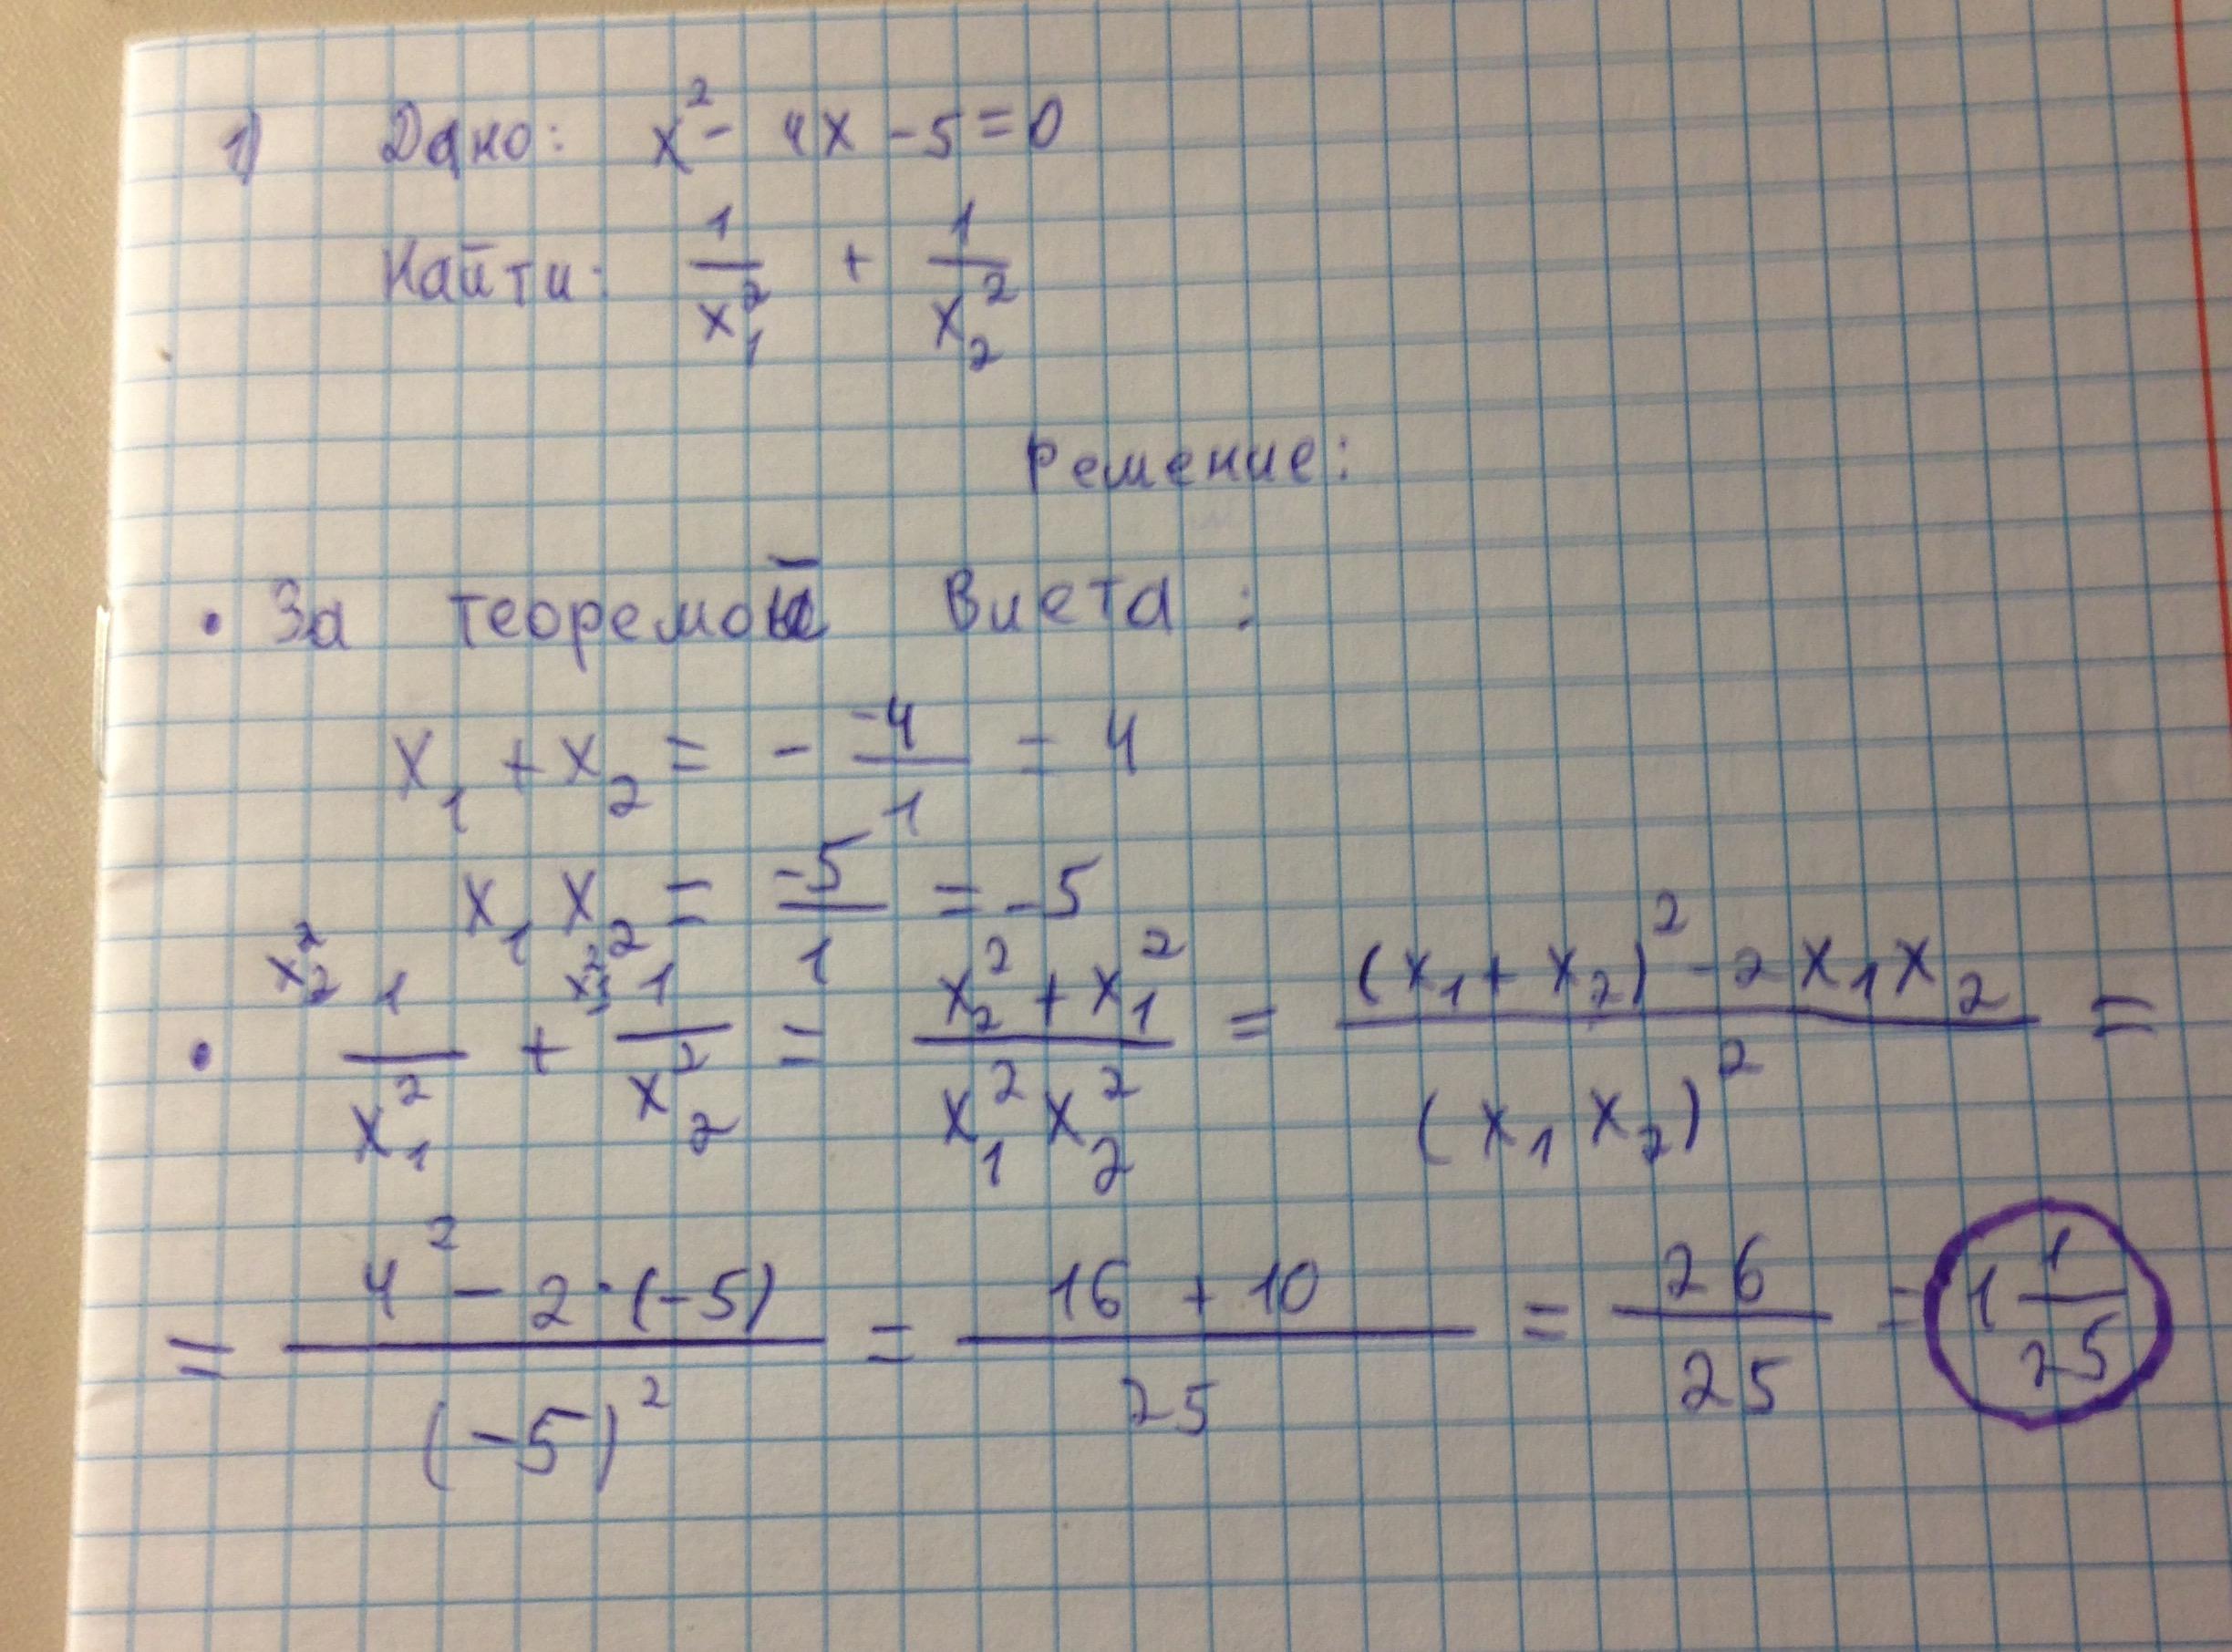 1) Дано: x² - 4x - 5 = 0
Найти: 1/x₁² + 1/x₂²
Решение:
• За теоремой Виета :
x₁ + x₂ = - -4/1 = 4
x₁ x₂ = -5/1 = -5
• x₂² 1/x₁² + x₁² 1/x₂² = (x₂² + x₁²)/(x₁² x₂²) = ((x₁ + x₂)² - 2x₁x₂)/(x₁ x₂)² =
= (4² - 2·(-5))/(-5)² = (16 + 10)/25 = 26/25 = 1 1/25